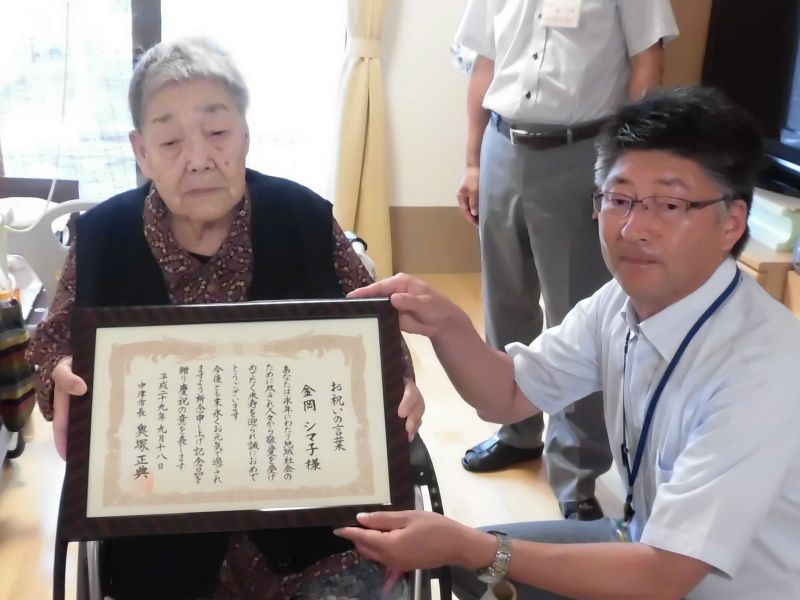 お祝いの言葉
金岡 シマ子様
あなたは永年にわたり地域社会の
ために尽され人々から敬愛を受け
めでたく米寿を迎られ誠におめで
とうございます
今後とも末永くお元気で過され
ますよう祈念申し上げ記念品を
贈り慶祝の意を表します
平成二十九年九月十八日
中津市長 奥塚正典